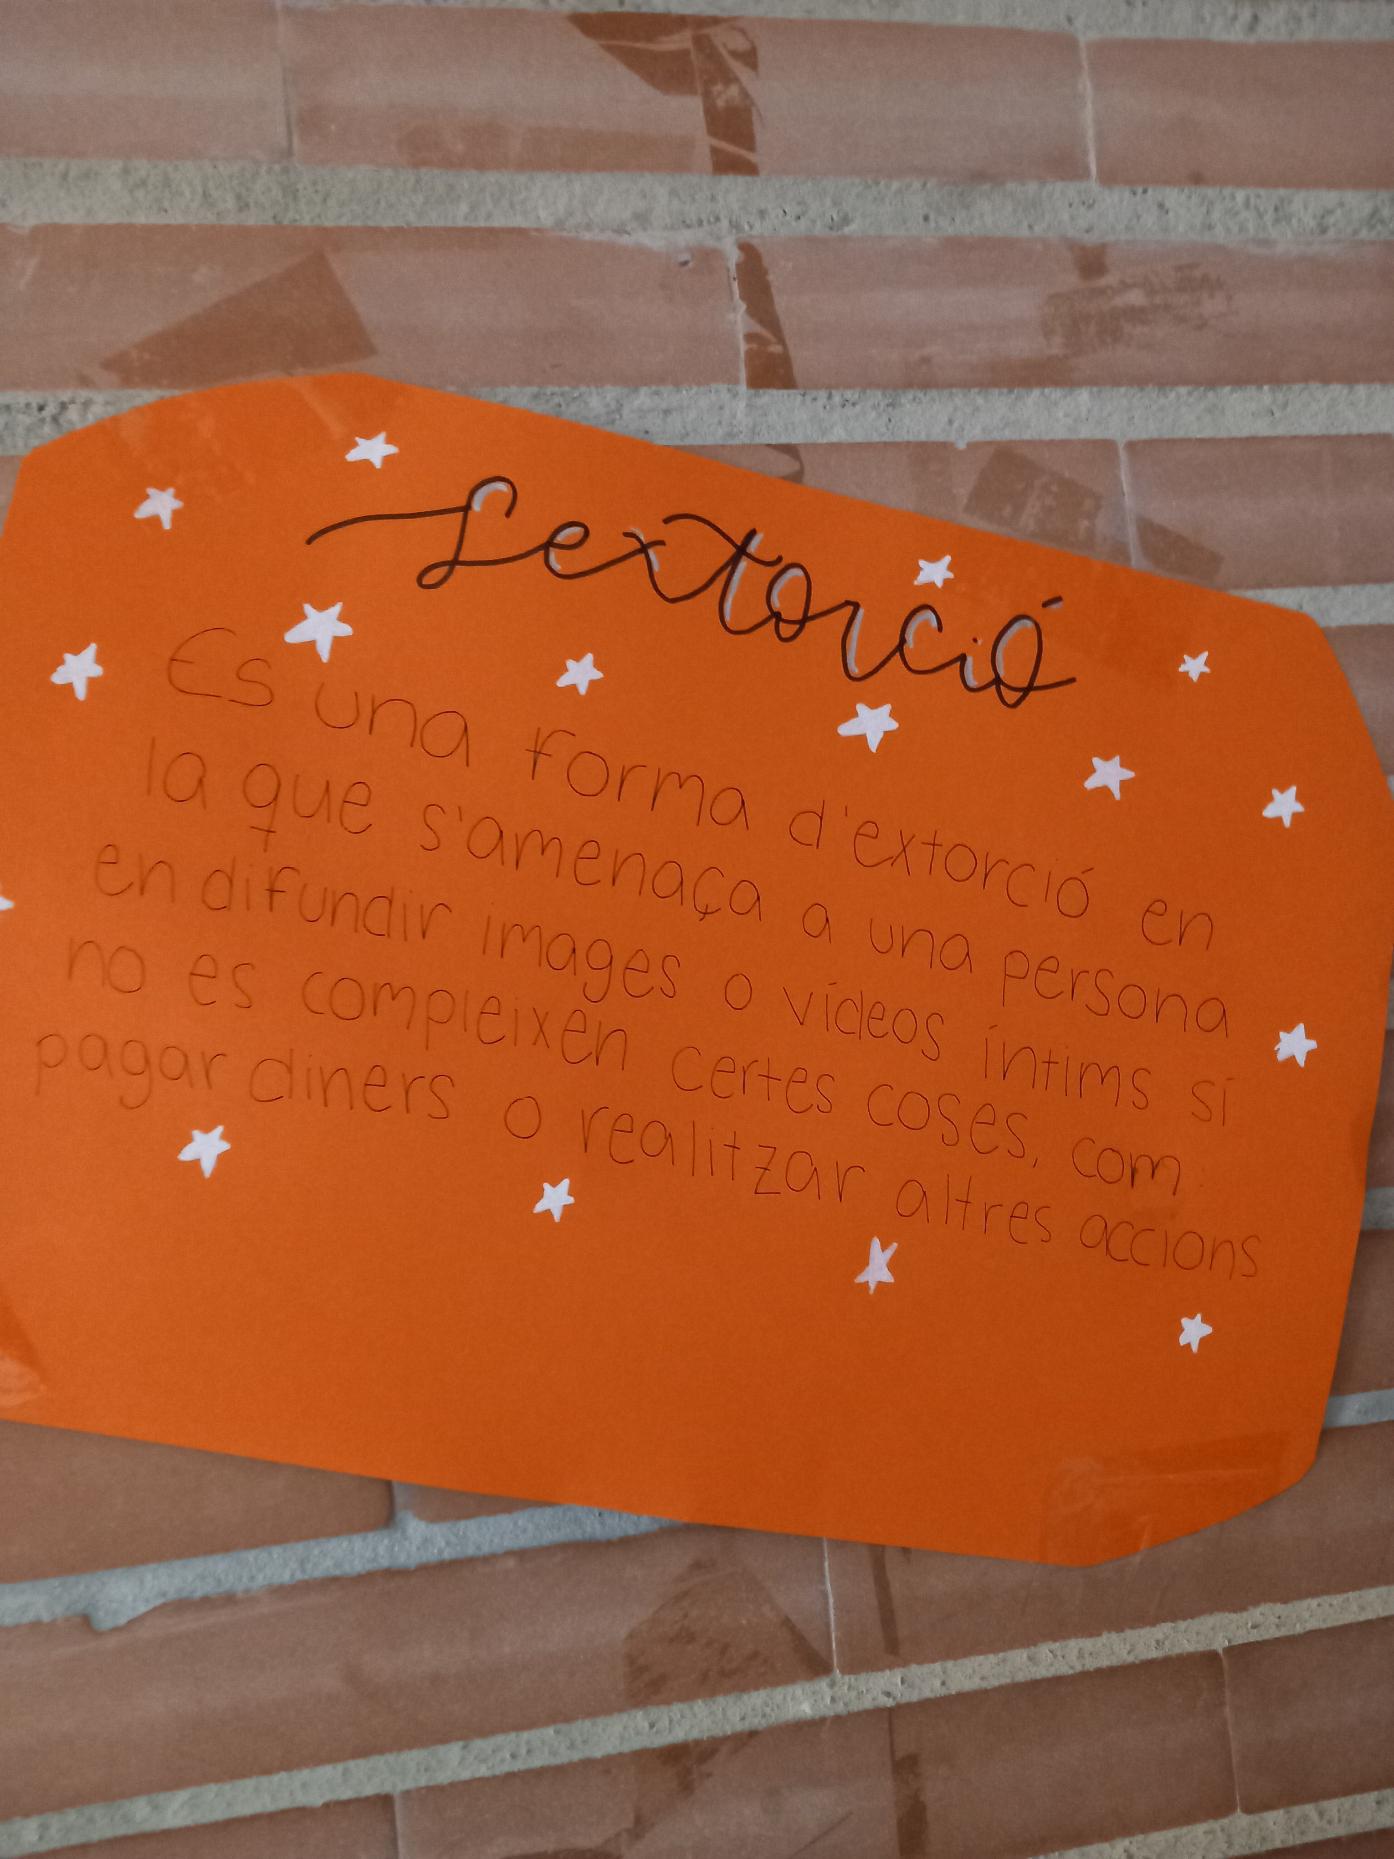 Sextorció
Es una forma d'extorció en
la que s'amenaça a una persona
en difundir images o vídeos íntims si
no es compleixen certes coses, com
pagar diners o realitzar altres accions